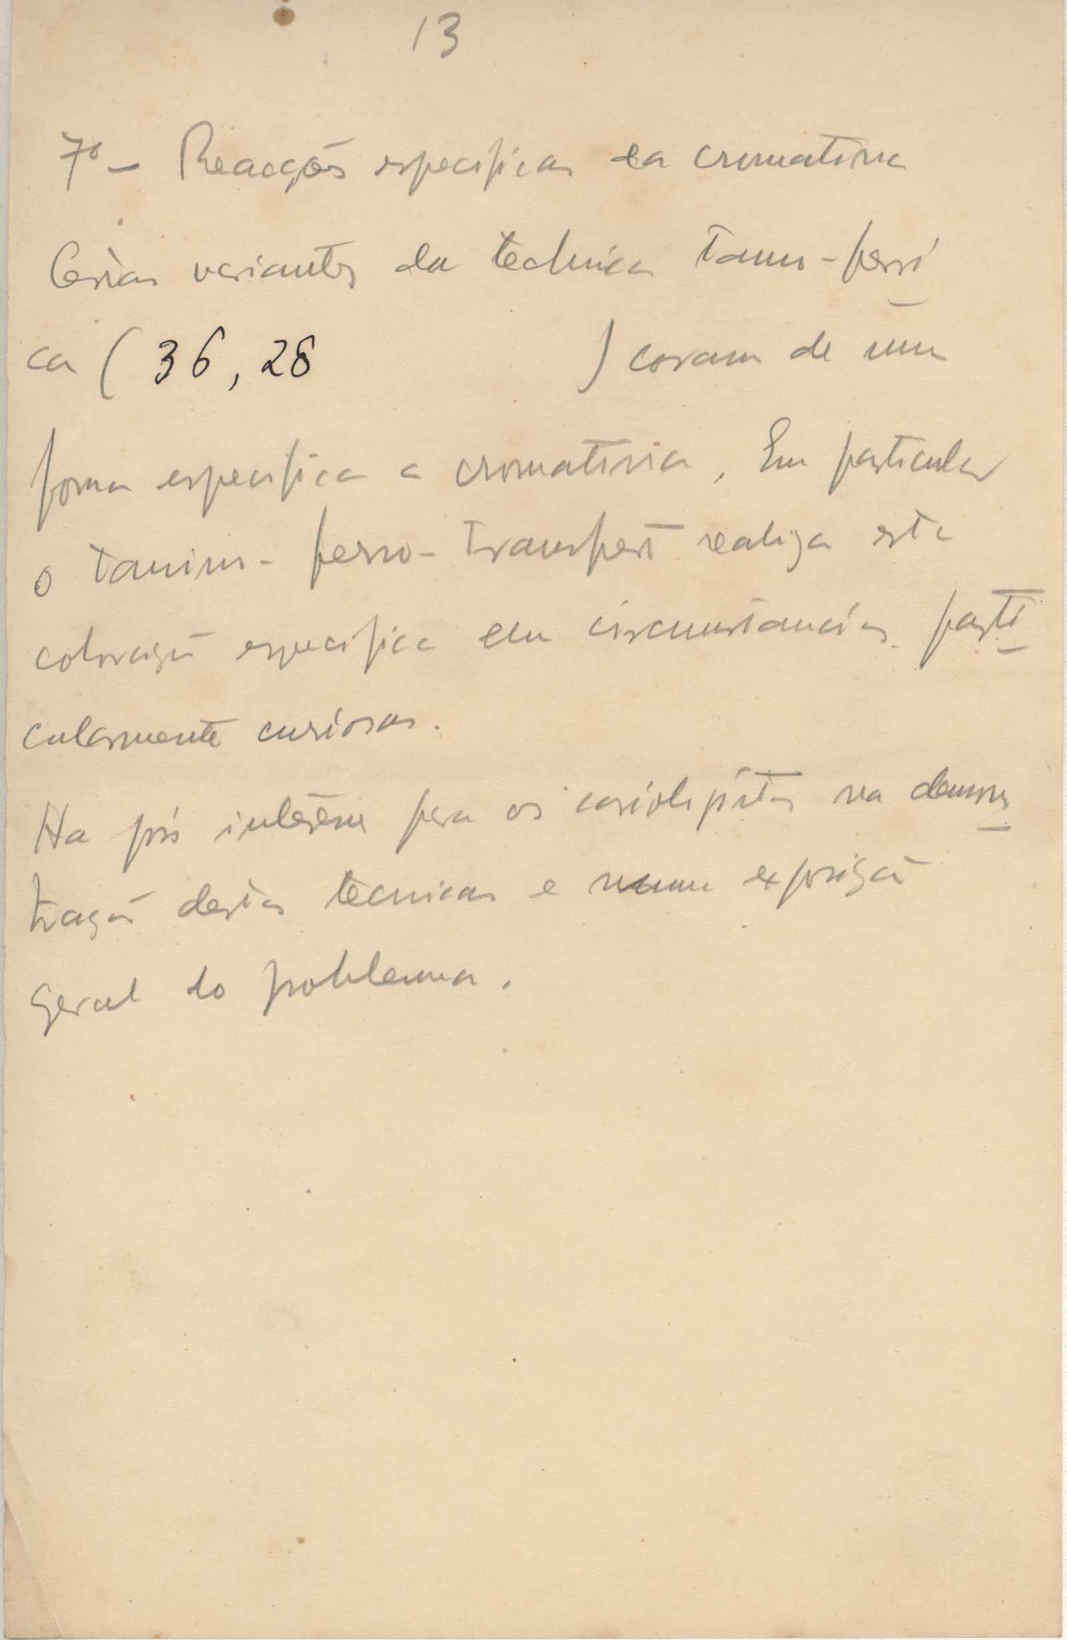 13
7º – Reacções especificas da cromatina
Certas variantes da technica tano-ferri
ca ( 36, 28 ) coram de uma
forma especifica a cromatina. Em particular
o tanino-ferro-transfert realiza esta
coloração especifica em circunstancias parti
cularmente curiosas.
Ha pois interesse para os na demons
tração destas tecnicas e numa exposição
geral do problema.